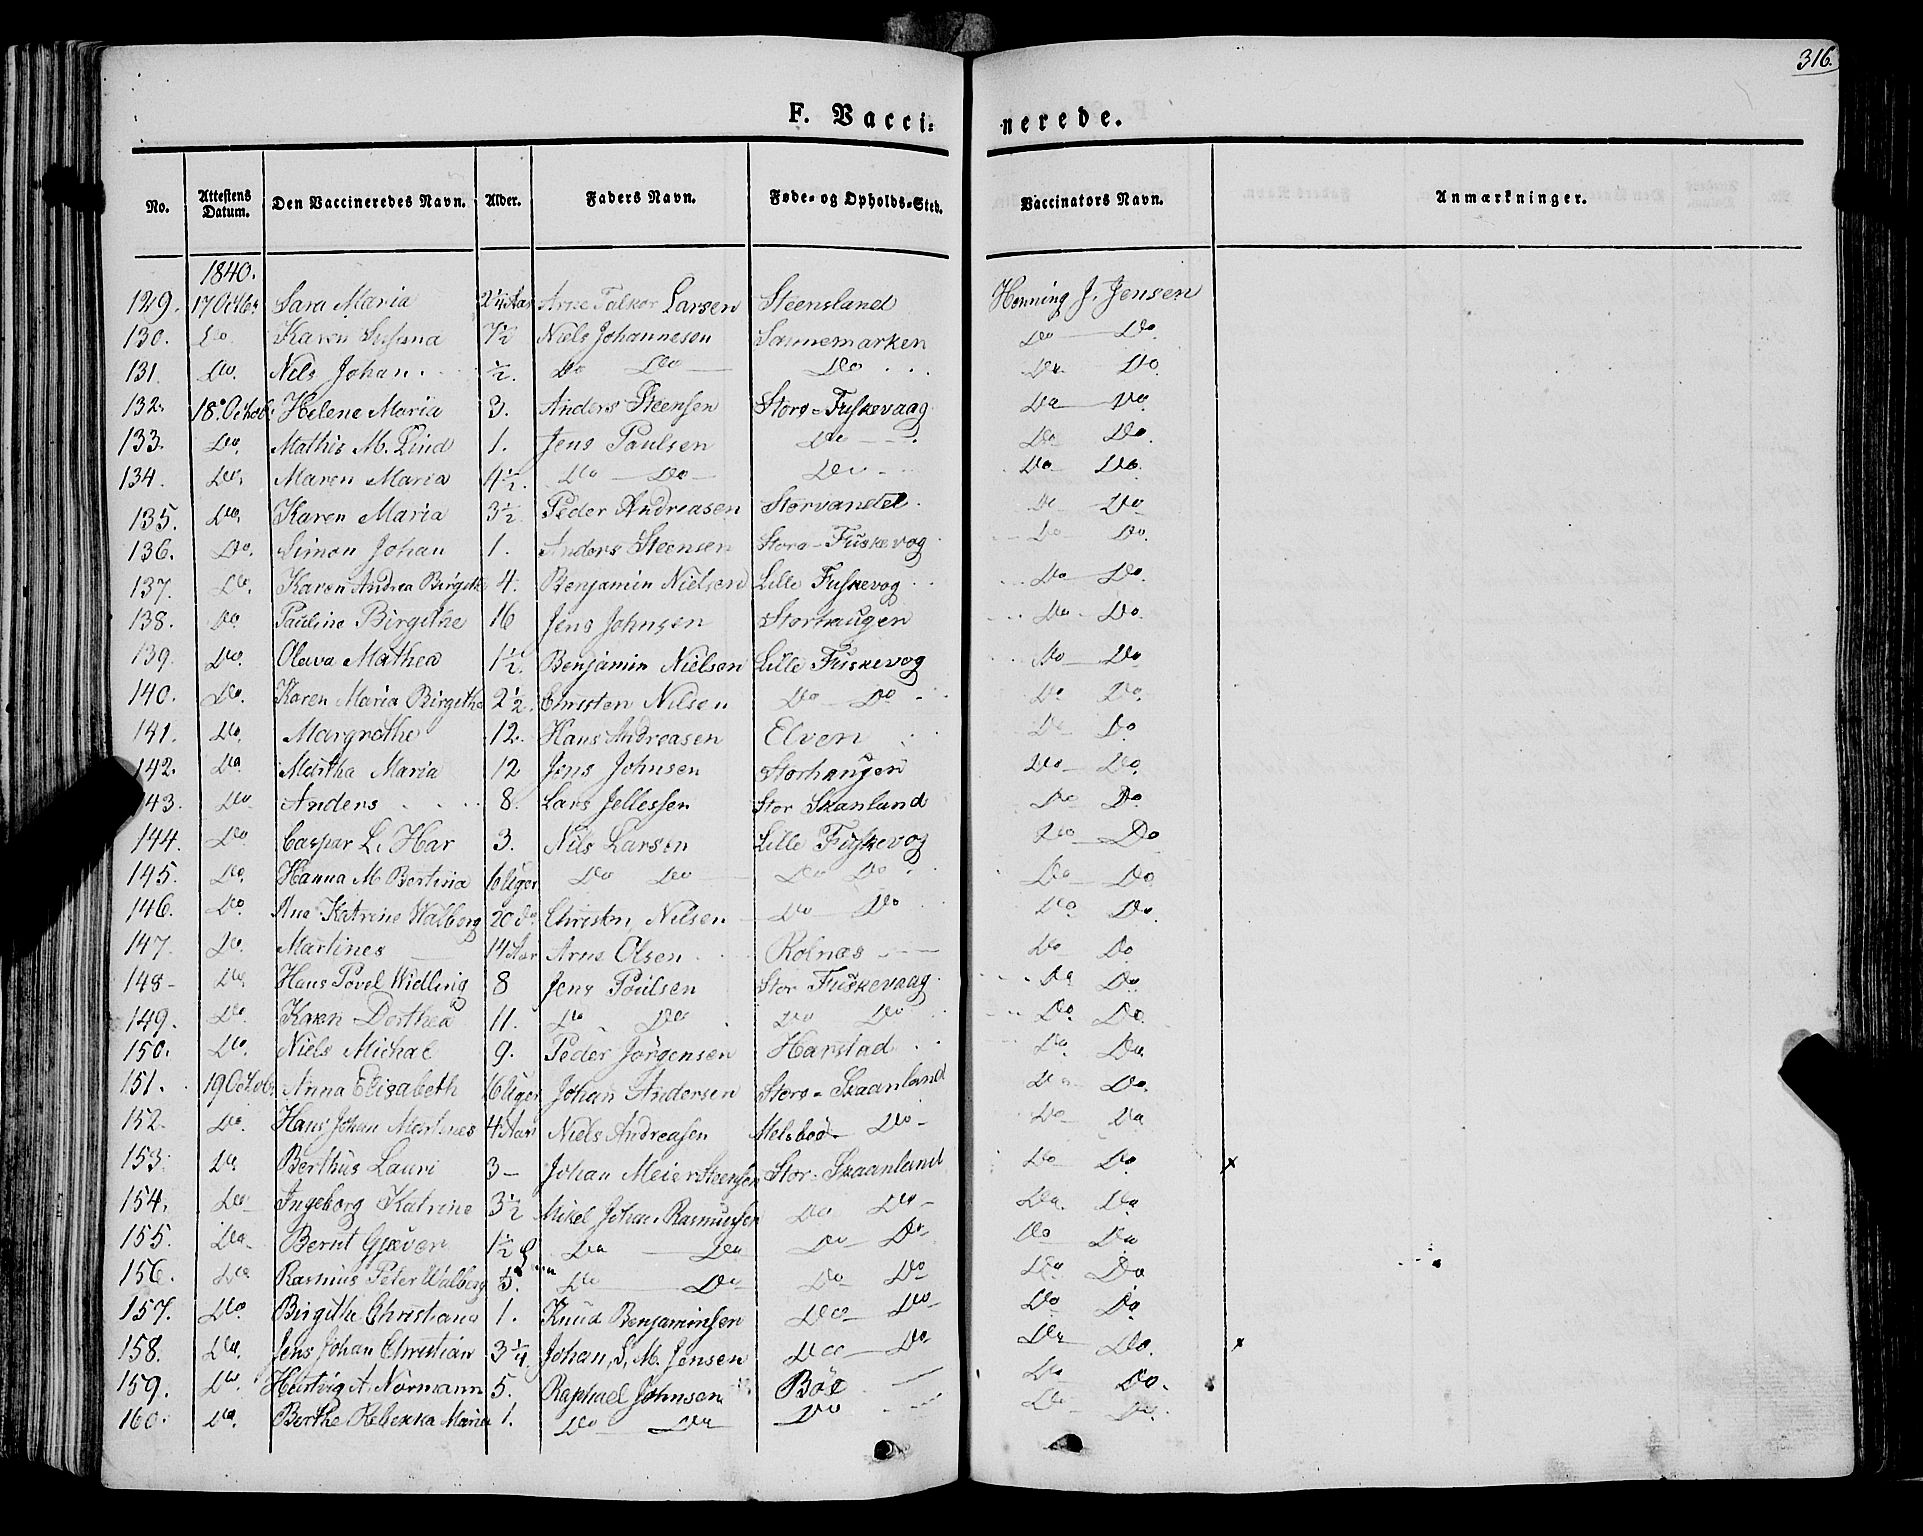 316.
F. Vacci- nerede.
No. Attestens Datum. Den Vaccineredes Navn. Alder. Faders Navn. Føde- og Opholds-Sted. Vaccinators Navn. Anmærkninger.
1840.
129. 17 Octbr Sara Maria 2 1/4 Aar Arne Falkor Larsen Steensland Henning J. Jensen
130. Do Karen Susana 7 1/2 Niels Johannesen Sannemarken Do Do
131. Do. Nils Johan 1/2. Do Do Do Do Do
132. 18. Octob. Helene Maria 3. Anders Steensen Store-Fuskevaag Do Do
133. Do. Mathis M. Lind 1. Jens Paulsen Do Do Do.
134. Do. Maren Maria 4 1/2. Do Do Do Do Do.
135. Do. Karen Maria 3 1/2 Peder Andreasen Storvandet Do Do
136. Do. Simon Johan 1. Anders Steensen Store-Fuskevog Do Do.
137. Do. Karen Andrea Birgithe 4. Benjamin Nielsen Lille Fuskevog Do Do.
138. Do Pauline Birgithe 16 Jens Johnsen Storhaugen Do Do.
139. Do. Olava Mathea 1 1/2. Benjamin Nielsen Lille Fuskevog Do Do
140. Do. Karen Maria Birgithe 2 1/2. Christen Nilsen Do Do Do Do.
141. Do. Margrethe 12. Hans Andreasen Elven Do Do
142. Do Martha Maria 12 Jens Johnsen Storhaugen Do Do.
143. Do Anders 8. Lars Jellessen Stor Skanland Do Do.
144. Do Caspar L. Har 3. Nils Larsen Lille Fuskevog Do Do
145. Do. Hanna M. Bertina 16 Uger Do Do Do Do Do Do.
146. Do Ane Katrine Walborg 20 do. Christen Nilsen Do Do Do Do.
147. Do. Martines 14 Aar Arne Olsen Rolnæs Do Do
148- Do. Hans Povel Widling 8 Jens Poulsen Stor Fuskevaag Do Do.
149. Do. Karen Dorthea 11. Do Do Do Do Do Do.
150. Do. Niels Michal 9. Peder Jörgensen Harstad Do. Do.
151. 19 Octob. Anna Elisabeth 16 Uger Johan Andersen Store-Skaanland Do Do.
152. Do. Hans Johan Martines 4 Aar Niels Andreasen Melsbod- Do- Do Do
153. Do. Berthus Lauri 3- Johan Meier Steensen Stor-Skaanland Do Do x
154. Do Ingeborg Katrine 3 1/2 Mikel Johan Rasmussen Do Do- Do. Do
155. Do- Bernt Gjæver 1 1/2 Do Do Do Do- Do Do
156. Do Rasmus Peter Walborg 5. Do Do Do Do Do Do
157. Do. Birgithe Christiana 1. Knud Benjaminsen Do Do- Do Do
158. Do. Jens Johan Christian 3 1/4 Johan S. M. Jensen Do Do- Do Do. x
159. Do. Hertvig A. Normann 5. Raphael Johnsen Böe Do Do.
160. Do. Berthe Rebekka Maria 1. Do Do Do Do Do.